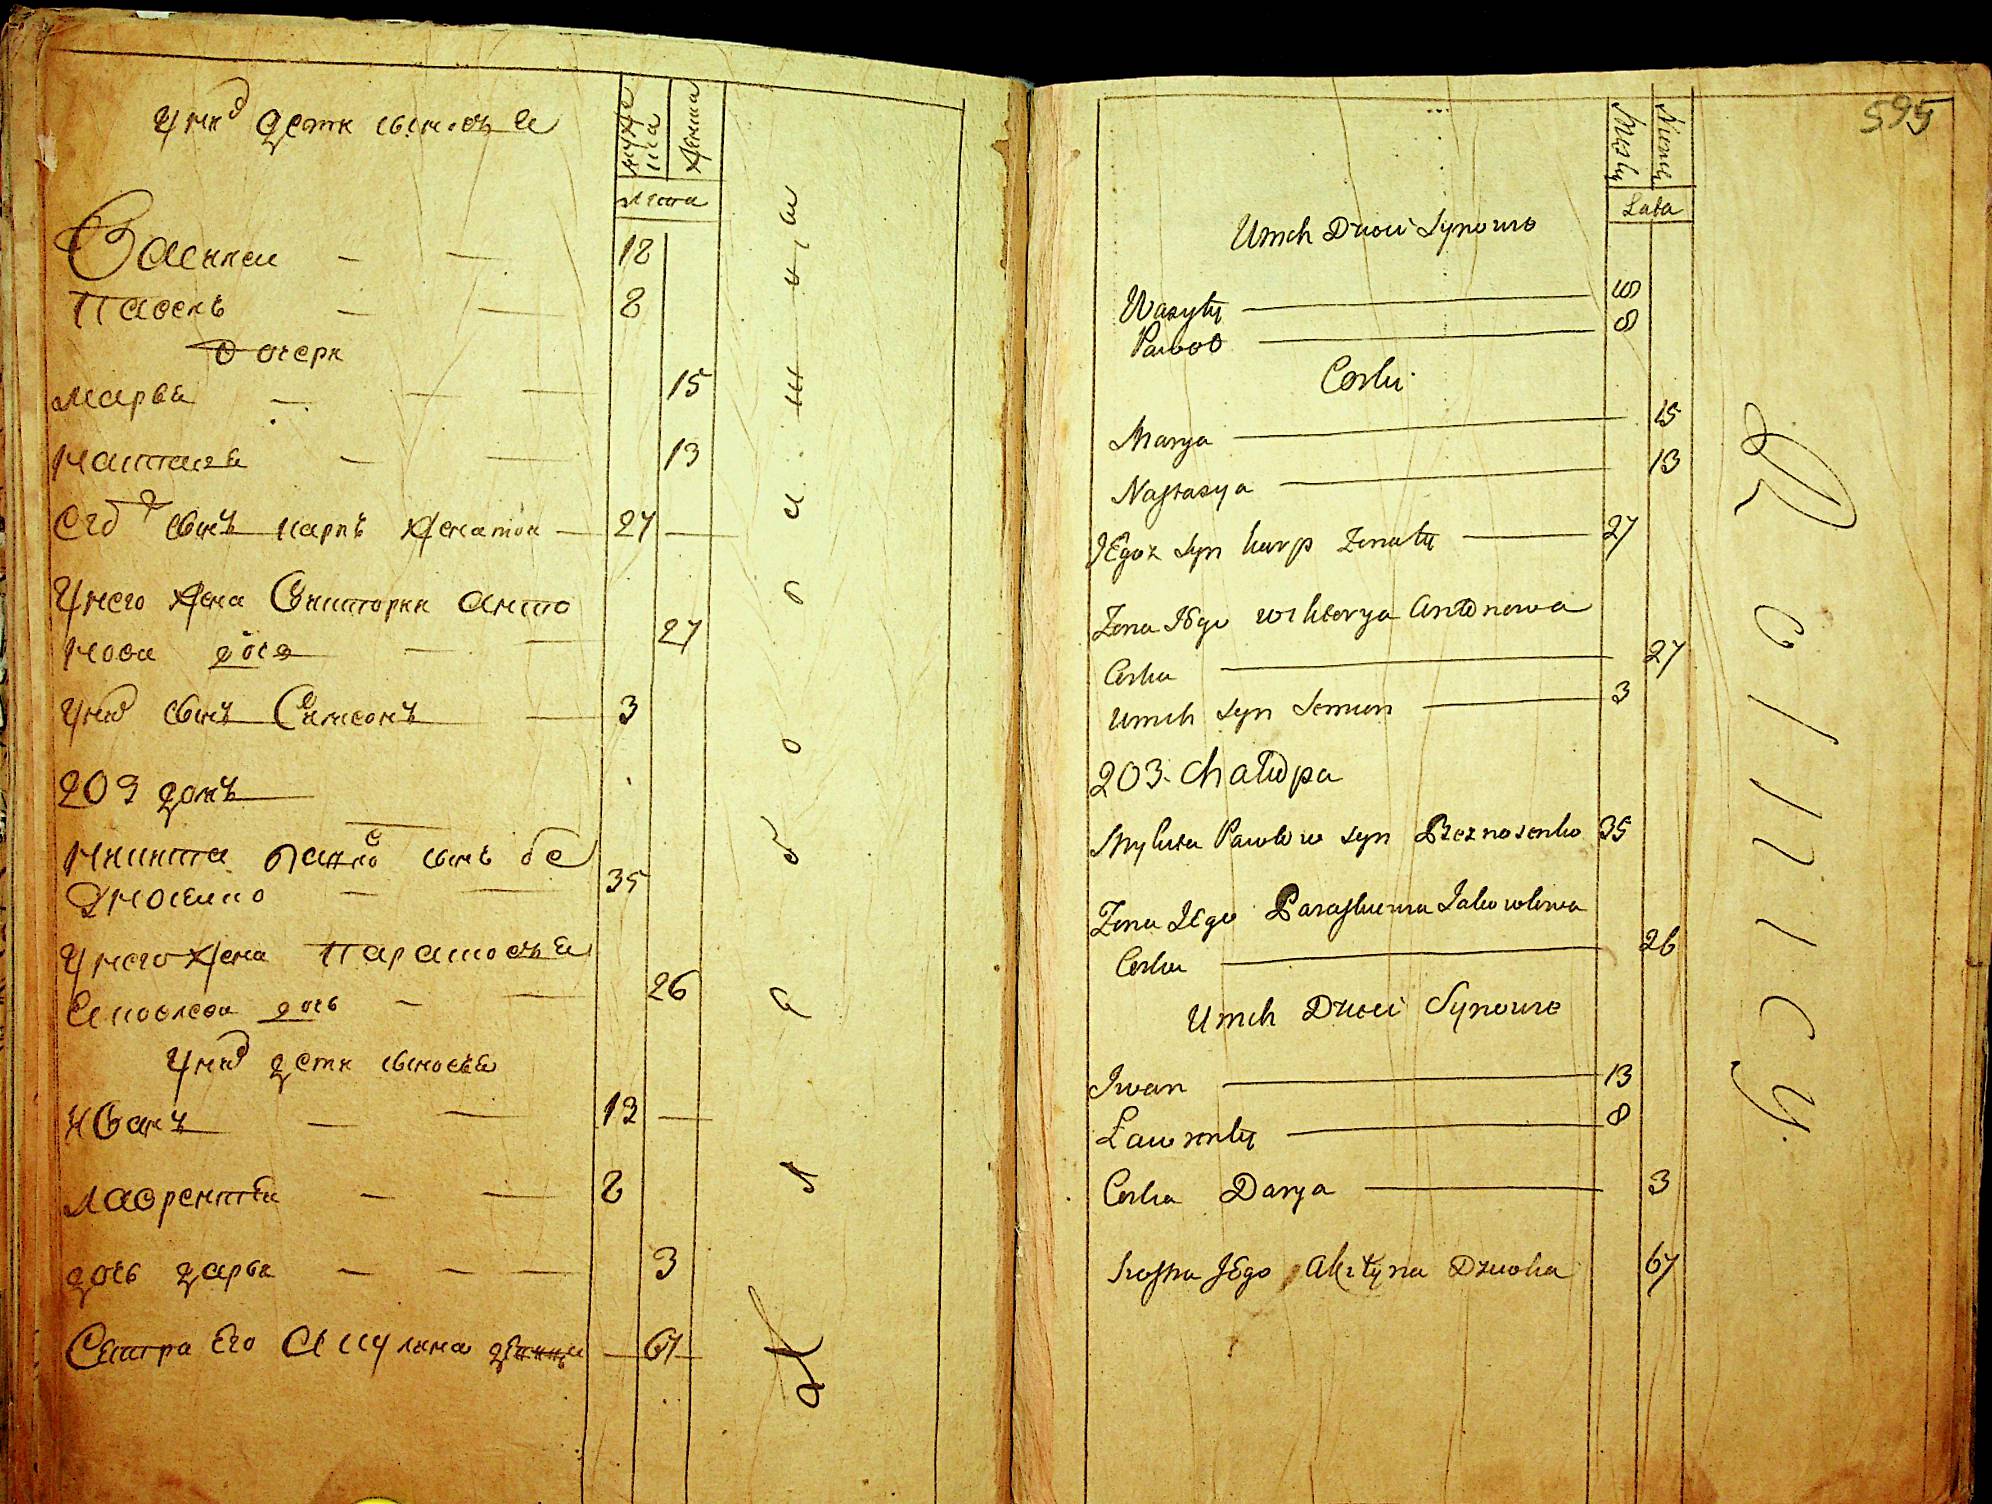 У них дети сыновья
мужеска
женска
лета
Василеи — — 18
Павелъ — — 8
дочери
Марья — — 15
Настасья — — 13
Его ж сынъ Карпъ женатои — 27
У него жена Виктория Анто
нова дочь — — 27
У них сынъ Симеонъ — 3
203 домъ
Никита Павловъ сынъ Бе
зносенко — — 35
У него жена Парасковья
Яковлева дочь — — 26
У них дети сыновья
Иванъ — — 13
Лаврентеи — — 8
дочь Дарья — — — 3
Сестра Его Акулина девица — 67
595
Męzky
Niemq
Lata
Umch Dzieci Synowie
Wasyłÿ — 18
Paweł — 8
Corki
Marya — 15
Nastasya — 13
JEgoz Syn karp Zonatÿ — 27
Zona JEgo Wiktorya Antonowa
Corka — 27
Umich Syn Semion — 3
203. Chałupa
Mykita Pawłow Syn Beznosenko 35
Zona JEgo Paraskiewia Jakowlewa
Corka — 26
Umich Dzieci Synowie
Iwan — 13
Ławrentÿ — 8
Corka Darya — 3
Siostra JEgo Akiłÿna Dziwka 67
Rolnicy